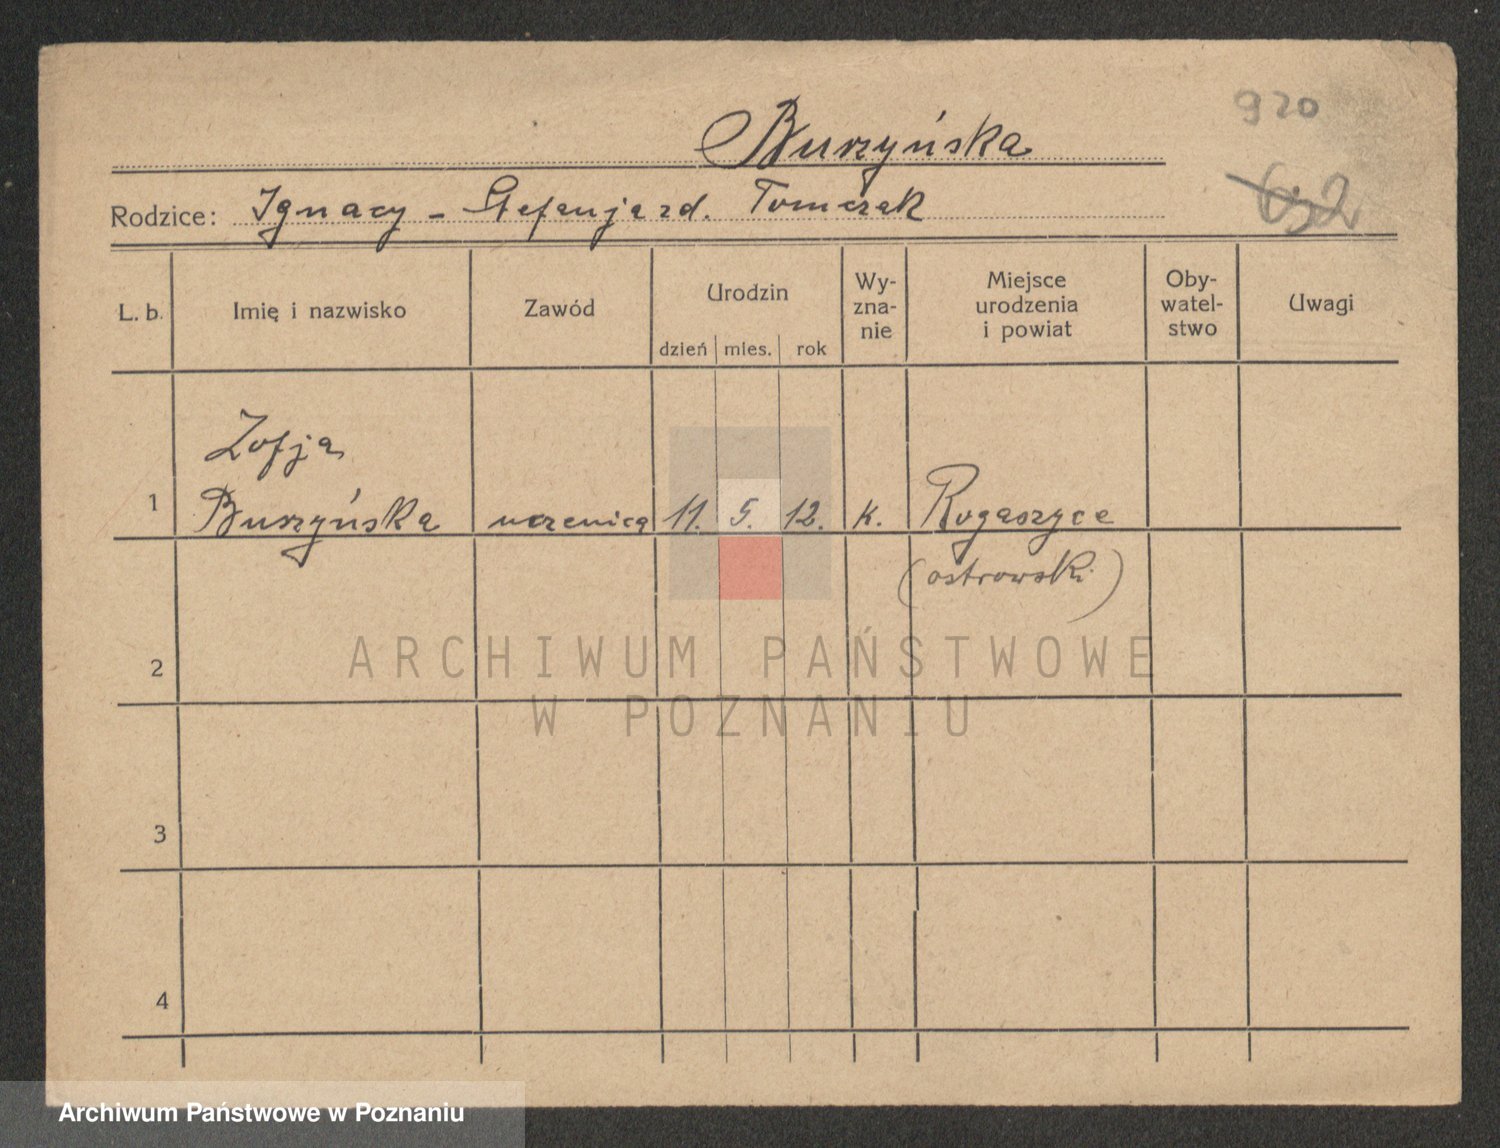 920
Burzyńska
Rodzice: Ignacy - Stefanja zd. Tomczak
L. b.
Imię i nazwisko
Zawód
Urodzin
dzień mies. rok
Wy-
zna-
nie
Miejsce
urodzenia
i powiat
Oby-
watel-
stwo
Uwagi
Zofja
1 Burzyńska uczenica 11. 5. 12. k. Rogaszyce
(ostrowski)
2
3
4
ARCHIWUM PAŃSTWOWE
W POZNANIU
Archiwum Państwowe w Poznaniu